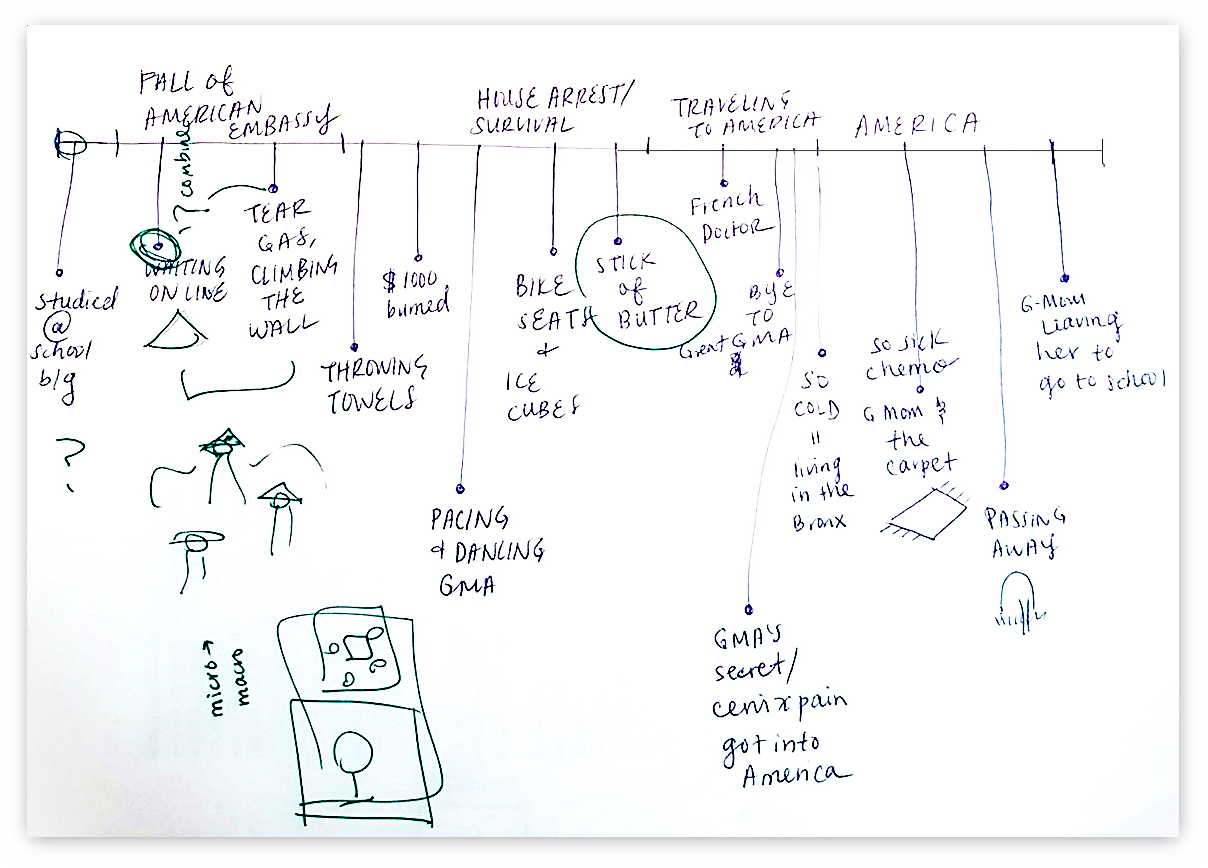 FALL of
AMERICAN
EMBASSY
HOUSE ARREST/
SURVIVAL
TRAVELING
TO AMERICA
AMERICA
? combine
studied
@
school
b/g
?
WAITING
ON LINE
TEAR
GAS,
CLIMBING
THE
WALL
THROWING
TOWELS
$1000
burned
PACING
& DANCING
GMA
BIKE
SEATS
&
ICE
CUBES
STICK
of
BUTTER
French
DOCTOR
BYE
TO
Great GMA
GMA'S
secret/
cervix pain
got into
America
SO
COLD
"
living
in the
Bronx
so sick
chemo
G Mom &
the
carpet
PASSING
AWAY
G-Mom
leaving
her to
go to school
micro →
macro